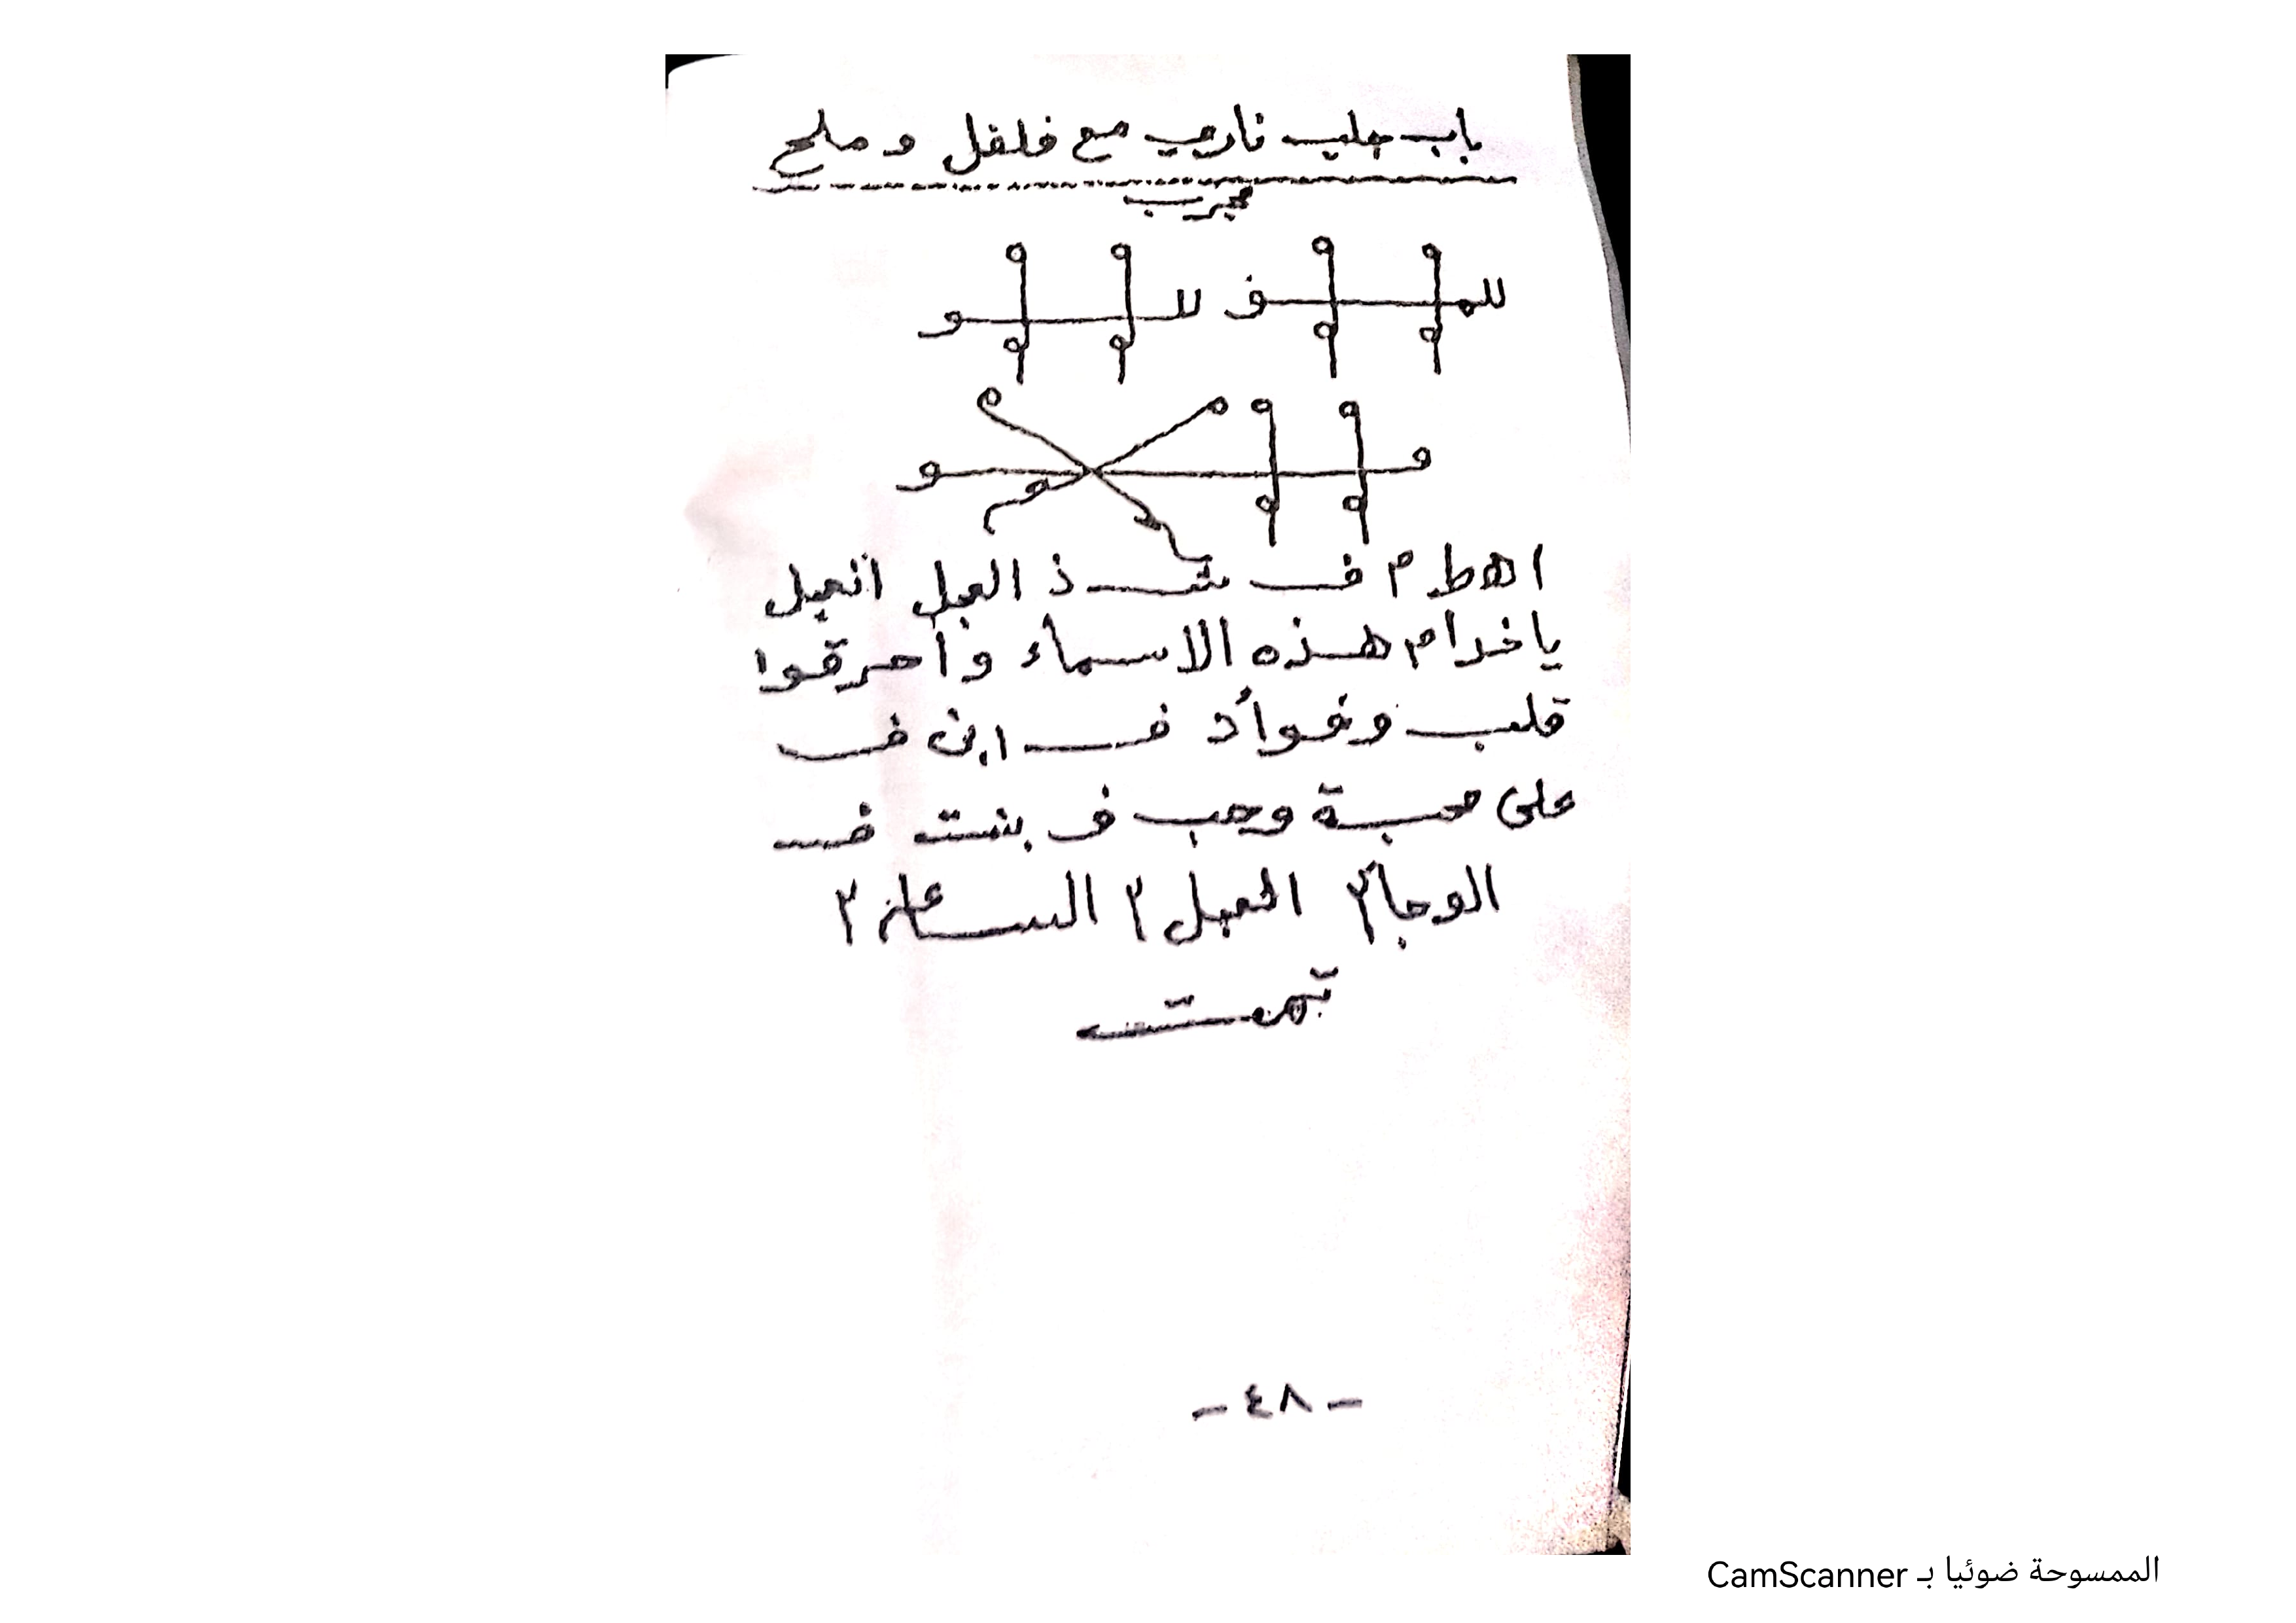 باب جليب ناري مع فلفل و ملح
مجرب
اهطم ف شذ العجل
ياخدام هذه الاسماء وأحرقوا
قلب وفوأد ف ابن ف
على محبة وحب ف بنت ف
الوحا٢ العجل ٢ الساعة ٢
تمت
- ٤٨ -
الممسوحة ضوئيا بـ CamScanner